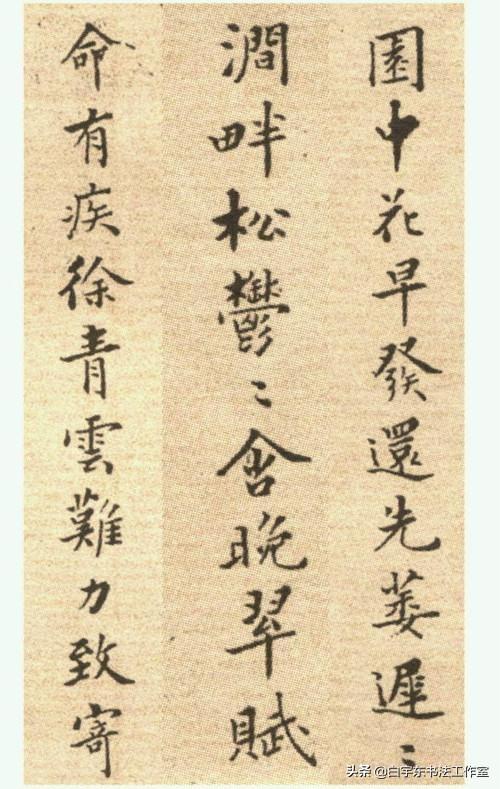 園中花早發還先萎遲〻
澗畔松鬱〻含晚翠賦
命有疾徐青雲難力致寄
头条 @白宇东书法工作室